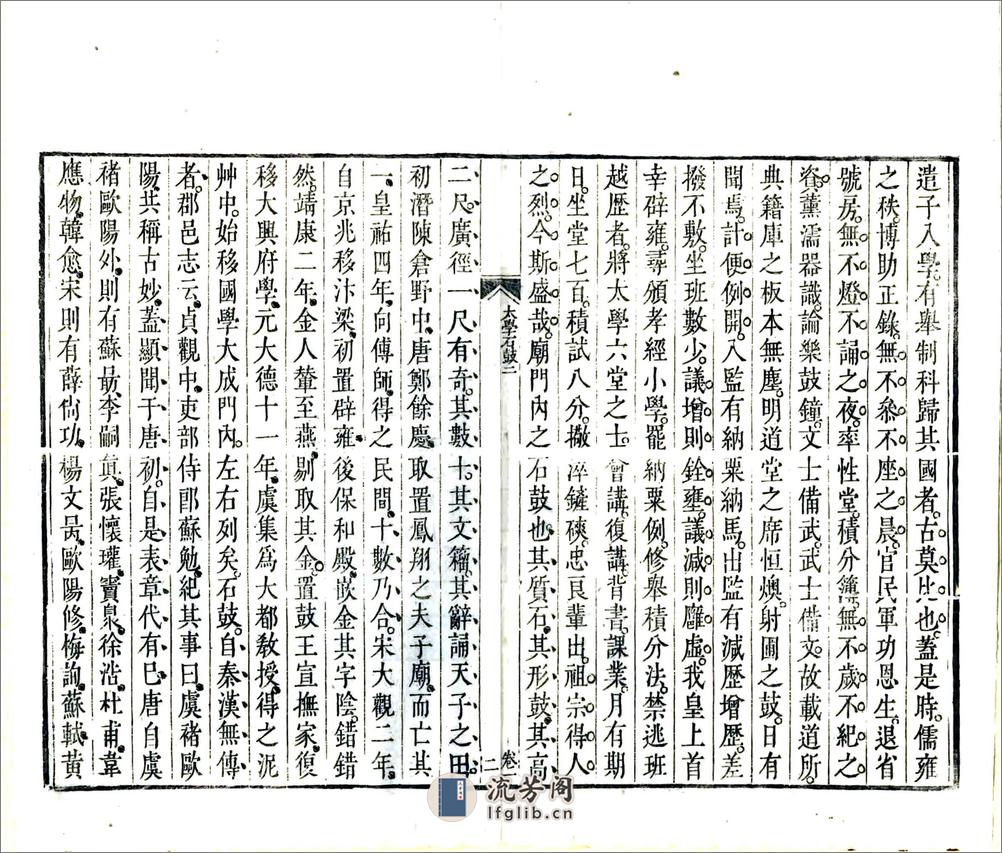 遣子入學。有舉制科歸其國者。古莫比也。蓋是時。儒雍
之秩。博助正錄。無不叅不座之晨。官民軍功恩生。退省
號房。無不燈不誦之夜。率性堂。積分簿。無不歲不紀之
資。薰濡器識。論樂鼓鐘。文士備武。武士備文。故載道所。
典籍庫之板本無塵。明道堂之席恒燠。射圃之鼓。日有
聞焉。計便例開。入監有納粟納馬。出監有減歷增歷。差
撥不敷。坐班數少。議增則銓壅。議減則廱虛。我皇上首
幸辟雍。尋頒孝經小學。罷納粟例。修舉積分法。禁逃班
越歷者。將太學六堂之士。會講復講背書。課業。月有期
日。坐堂七百。積試八分。撒滓鏟磢。忠良輩出。祖宗得人
之烈。今斯盛哉。廟門內之石鼓也。其質石。其形鼓。其高
太學石鼓二
卷一
二
二尺。廣徑一尺有奇。其數十。其文籀。其辭誦天子之田。
初潛陳倉野中。唐鄭餘慶。取置鳳翔之夫子廟。而亡其
一。皇祐四年。向傅師。得之民間。十數乃合。宋大觀二年。
自京兆移汴梁。初置辟雍。後保和殿。嵌金其字陰。錯錯
然。靖康二年。金人輦至燕。剔取其金。置鼓王宣撫家。復
移大興府學。元大德十一年。虞集爲大都敎授。得之泥
艸中。始移國學大成門內。左右列矣。石鼓。自秦漢無傳
者。郡邑志云。貞觀中。吏部侍郎蘇勉。紀其事曰。虞褚歐
陽。共稱古妙。蓋顯聞于唐初。自是表章代有。巳唐自虞
褚歐陽外。則有蘇勗。李嗣眞。張懷瓘。竇臮。徐浩。杜甫。韋
應物。韓愈。宋則有薛尙功。楊文昺。歐陽修。梅詢。蘇軾。黃
流芳阁
lfglib.cn